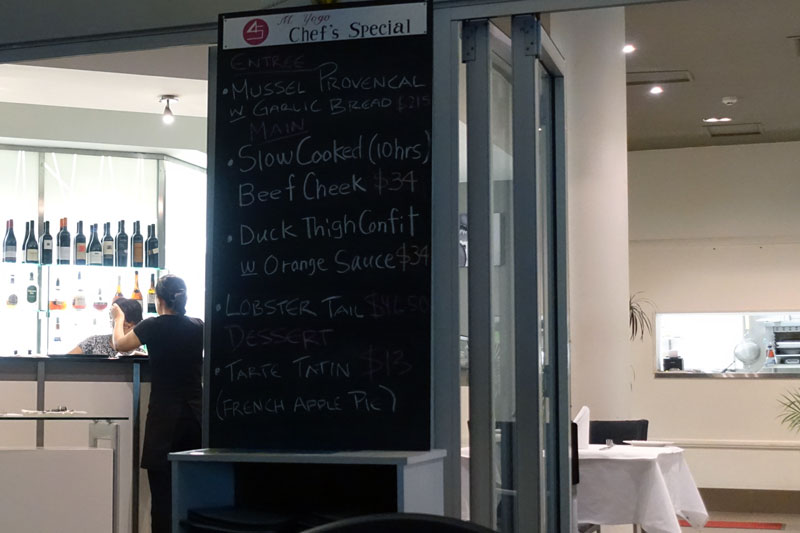 M Yogo
Chef's Special
ENTREE
• MUSSEL PROVENCAL
w GARLIC BREAD
MAIN
• Slow Cooked (10hrs)
Beef Cheek $34
• Duck Thigh Confit
w Orange Sauce $34
• LOBSTER TAIL $46.50
DESSERT
• TARTE TATIN $13
(FRENCH APPLE PIE)